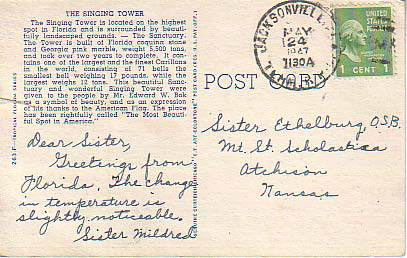 THE SINGING TOWER
The Singing Tower is located on the highest
spot in Florida and is surrounded by beauti-
fully landscaped grounds. — The Sanctuary.
The Tower is built of Florida coquina stone
and Georgia pink marble, weight 5,500 tons,
and took over two years to complete. It con-
tains one of the largest and the finest Carillons
in the world, consisting of 71 bells the
smallest bell weighing 17 pounds, while the
largest weighs 12 tons. This beautiful Sanc-
tuary and wonderful Singing Tower were
given to the people by Mr. Edward W. Bok
as a symbol of beauty, and as an expression
of his thanks to the American Flag. The place
has been rightfully called "The Most Beauti-
ful Spot in America."
Dear Sister,
Greetings from
Florida. The change
in temperature is
slightly noticeable.
Sister Mildred
POST CARD
JACKSONVILLE
MAY
24
1130A
1947
UNITED STATES
POSTAGE
1 CENT 1
Sister Ethelburg, O.S.B.
Mt. St. Scholastica
Atchison
Kansas